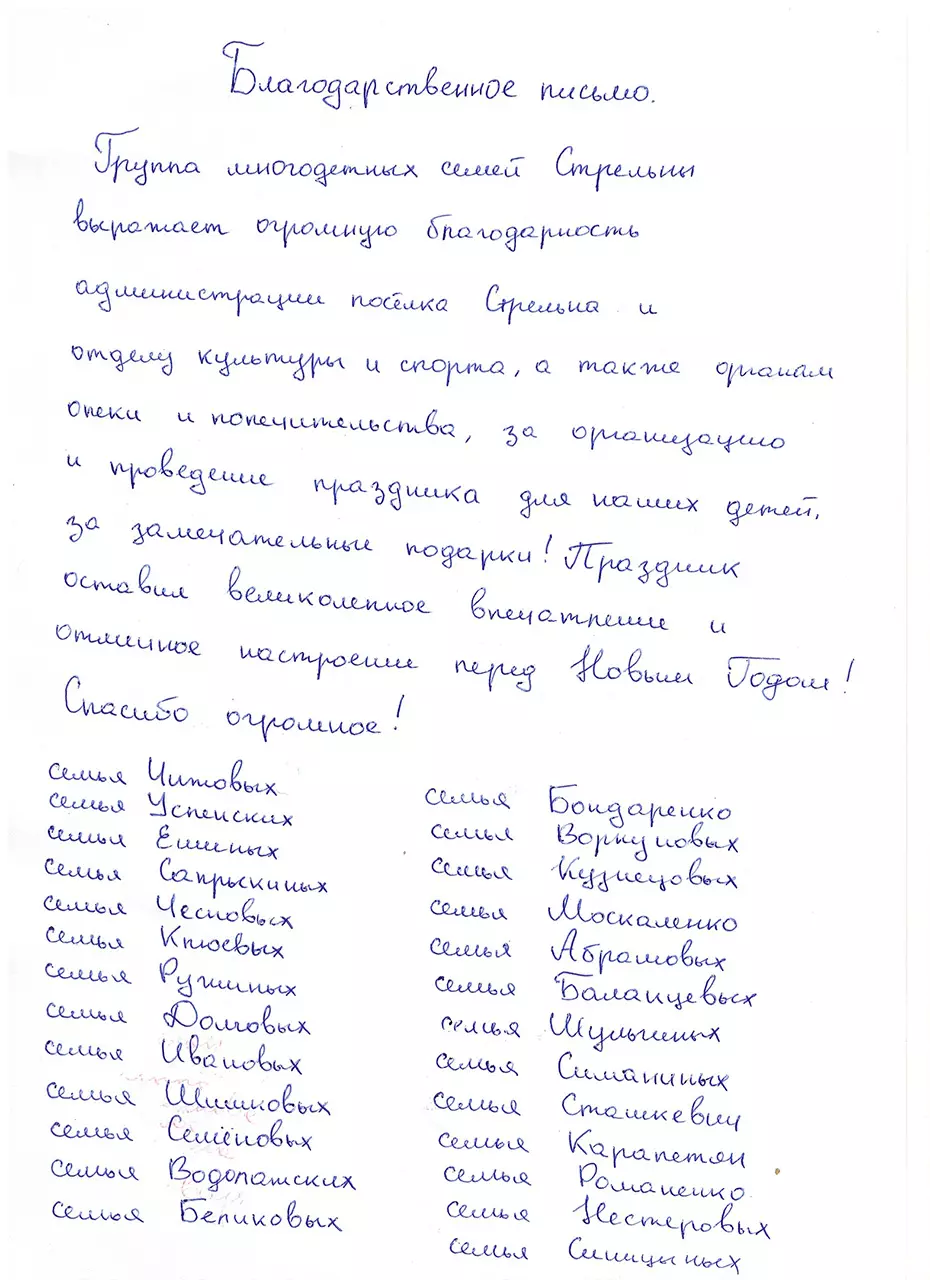 Благодарственное письмо.
Группа многодетных семей Стрельны
выражает огромную благодарность
администрации посёлка Стрельна и
отделу культуры и спорта, а также органам
опеки и попечительства, за организацию
и проведение праздника для наших детей,
за замечательные подарки! Праздник
оставил великолепное впечатление и
отличное настроение перед Новым Годом!
Спасибо огромное!
семья Читовых
семья Успенских
семья Ешиных
семья Сапрыкиных
семья Чесновых
семья Клюевых
семья Ружиных
семья Долговых
семья Ивановых
семья Шишковых
семья Семёновых
семья
семья Беликовых
семья Бондаренко
семья
семья Кузнецовых
семья Москаленко
семья Абрамовых
семья Баланцевых
семья Шульгиных
семья Симаниных
семья Сташкевич
семья Карапетян
семья Романенко
семья Нестеровых
семья Синицыных